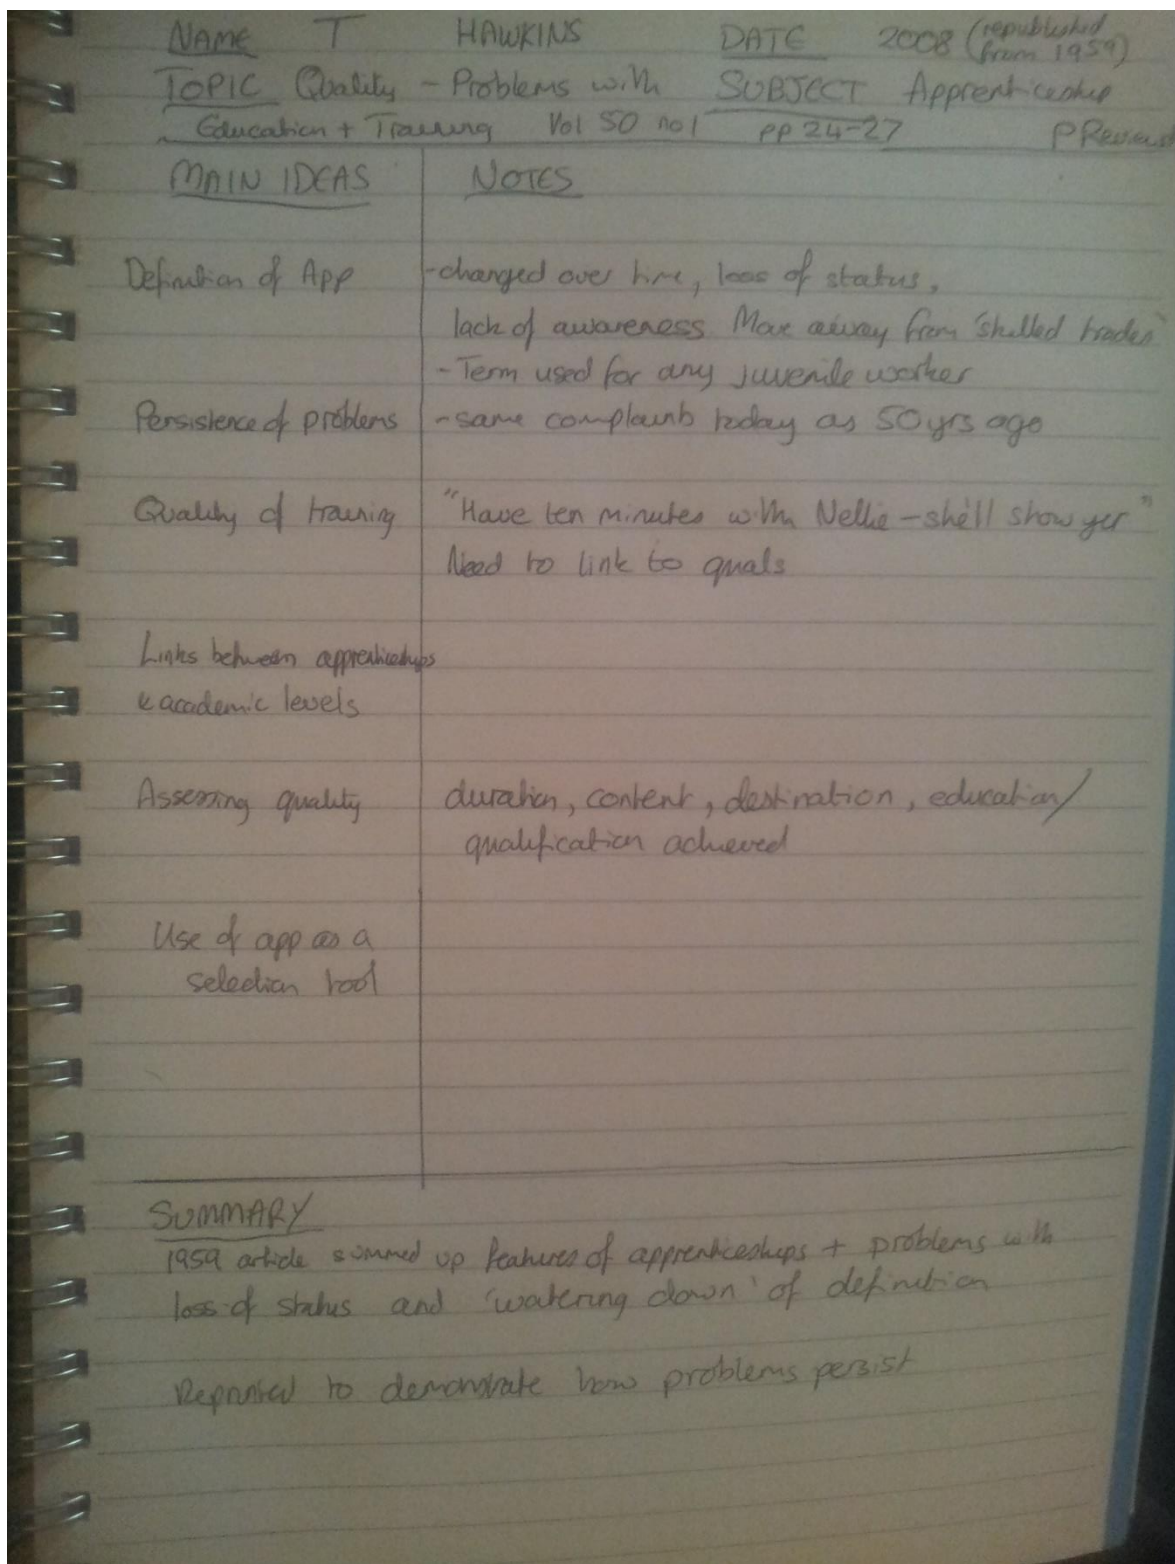 NAME T HAWKINS DATE 2008 (republished from 1959)
TOPIC Quality - Problems with SUBJECT Apprenticeship
Education + Training Vol 50 no 1 pp 24-27 P Review
MAIN IDEAS NOTES
Definition of App - changed over time, loss of status,
lack of awareness Move away from 'skilled trades'
- Term used for any juvenile worker
Persistence of problems - same complaints today as 50 yrs ago
Quality of training "Have ten minutes with Nellie - she'll show yer"
Need to link to quals
Links between apprenticeships
& academic levels
Assessing quality duration, content, destination, education/
qualification achieved
Use of app as a
selection tool
SUMMARY
1959 article summed up features of apprenticeships + problems with
loss of status and 'watering down' of definition
Reprinted to demonstrate how problems persist